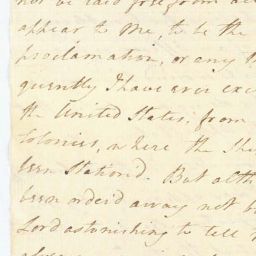 not be said free from
appear to me, to be the
proclamation, or any
quently I have ever exc
the United States, from
Colonies, where the She
been Station'd. But alth
been order'd away not b
Lord astonishing to tell